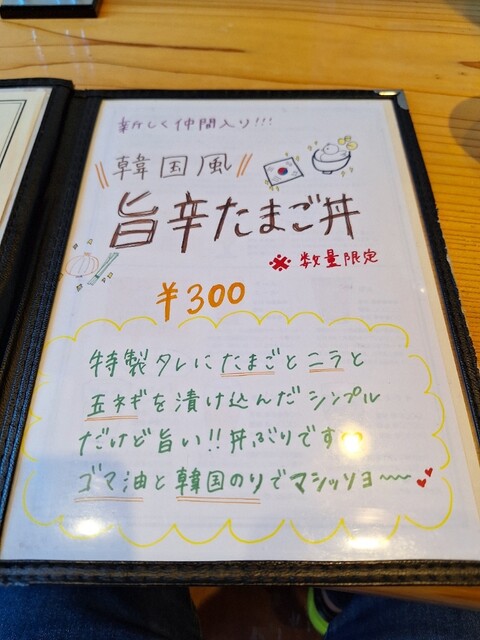 新しく仲間入り!!!
\\韓国風//
旨辛たまご丼
※数量限定
¥300
特製タレにたまごとニラと
玉ネギを漬け込んだシンプル
だけど旨い!!丼ぶりです
ゴマ油と韓国のりでマシッソヨ〜〜